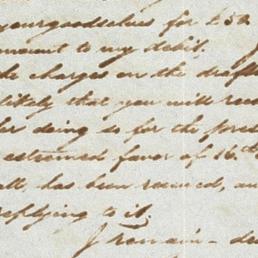 yourgoodselves for £50
amount to my debit.
the charges on the draft
likely that you will rece
for doing so for the pres
esteemed favor of 16th
all, has been received, an
replying to it.
I remain - de